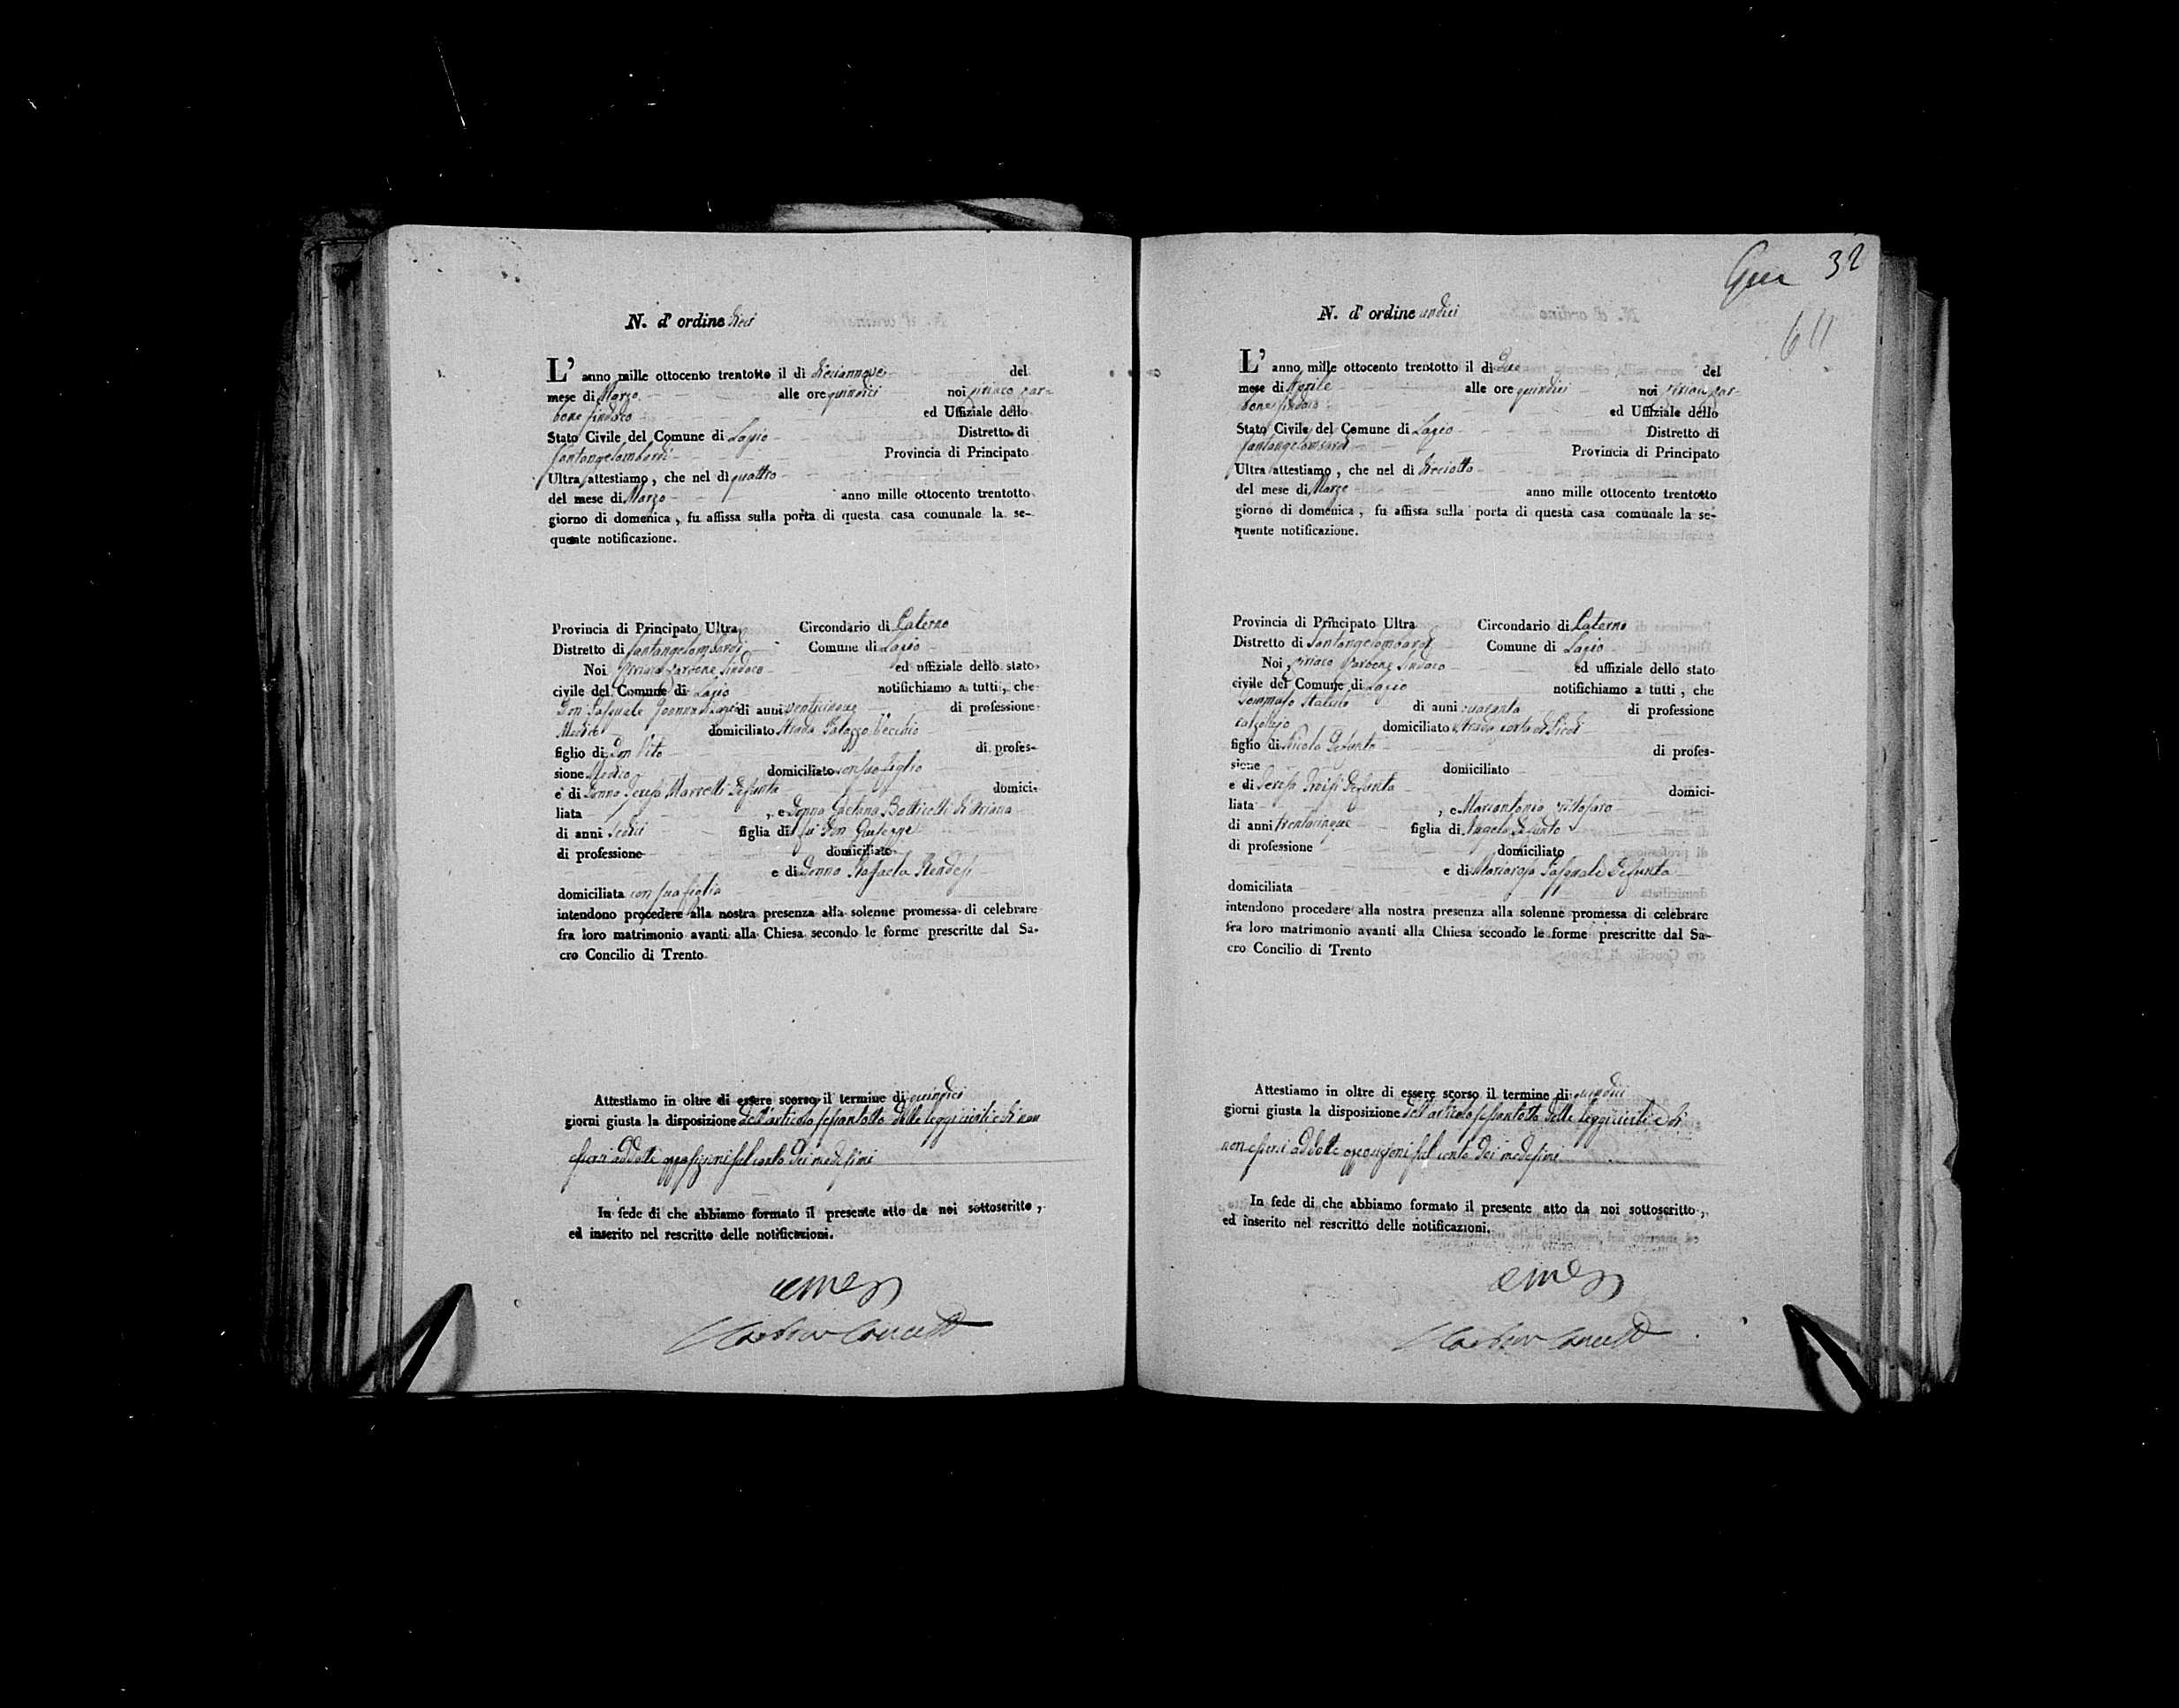 N. d' ordine dieci
L' anno mille ottocento trentotto il dì diciannove del
mese di Marzo alle ore quindici noi Ciriaco Car-
bone Sindaco ed Uffiziale dello
Stato Civile del Comune di Lapio Distretto di
Santangelombardi Provincia di Principato
Ultra attestiamo, che nel dì quattro
del mese di Marzo anno mille ottocento trentotto
giorno di domenica, fu affissa sulla porta di questa casa comunale la se-
quente notificazione.
Provincia di Principato Ultra Circondario di Paterno
Distretto di Santangelombardi Comune di Lapio
Noi Ciriaco Carbone Sindaco ed uffiziale dello stato
civile del Comune di Lapio notifichiamo a tutti, che
Don Pasquale di anni venticinque di professione
Medico domiciliato Strada Palazzo Vecchio
figlio di Don Vito di profes-
sione Medico domiciliato con suo figlio
e di Donna Teresa Marcelli defunta domici-
liata , e Donna Gaetana Botticelli di Ariano
di anni sedici figlia di fu Don Giuseppe
di professione domiciliato
e di Donna Raffaela
domiciliata con sua figlia
intendono procedere alla nostra presenza alla solenne promessa di celebrare
fra loro matrimonio avanti alla Chiesa secondo le forme prescritte dal Sa-
cro Concilio di Trento
Attestiamo in oltre di essere scorso il termine di quindici
giorni giusta la disposizione dell'articolo sessantotto delle leggi civili e di non
essersi addotte opposizioni sul conto dei medesimi
In fede di che abbiamo formato il presente atto da noi sottoscritto,
ed inserito nel rescritto delle notificazioni.
Gen 32
N. d' ordine undici
L' anno mille ottocento trentotto il dì due del
mese di Aprile alle ore quindici noi Ciriaco Car-
bone Sindaco ed Uffiziale dello
Stato Civile del Comune di Lapio Distretto di
Santangelombardi Provincia di Principato
Ultra attestiamo, che nel dì diciotto
del mese di Marzo anno mille ottocento trentotto
giorno di domenica, fu affissa sulla porta di questa casa comunale la se-
quente notificazione.
Provincia di Principato Ultra Circondario di Paterno
Distretto di Santangelombardi Comune di Lapio
Noi Ciriaco Carbone Sindaco ed uffiziale dello stato
civile del Comune di Lapio notifichiamo a tutti, che
Tommaso di anni quaranta di professione
calzolajo domiciliato Strada
figlio di Nicola defunto di profes-
sione domiciliato
e di Teresa Troisi defunta domici-
liata , e Mariantonia
di anni trentacinque figlia di Angelo defunto
di professione domiciliato
e di Mariarosa Pasquale defunta
domiciliata
intendono procedere alla nostra presenza alla solenne promessa di celebrare
fra loro matrimonio avanti alla Chiesa secondo le forme prescritte dal Sa-
cro Concilio di Trento
Attestiamo in oltre di essere scorso il termine di quindici
giorni giusta la disposizione dell'articolo sessantotto delle leggi civili e di
non essersi addotte opposizioni sul conto dei medesimi
In fede di che abbiamo formato il presente atto da noi sottoscritto,
ed inserito nel rescritto delle notificazioni.